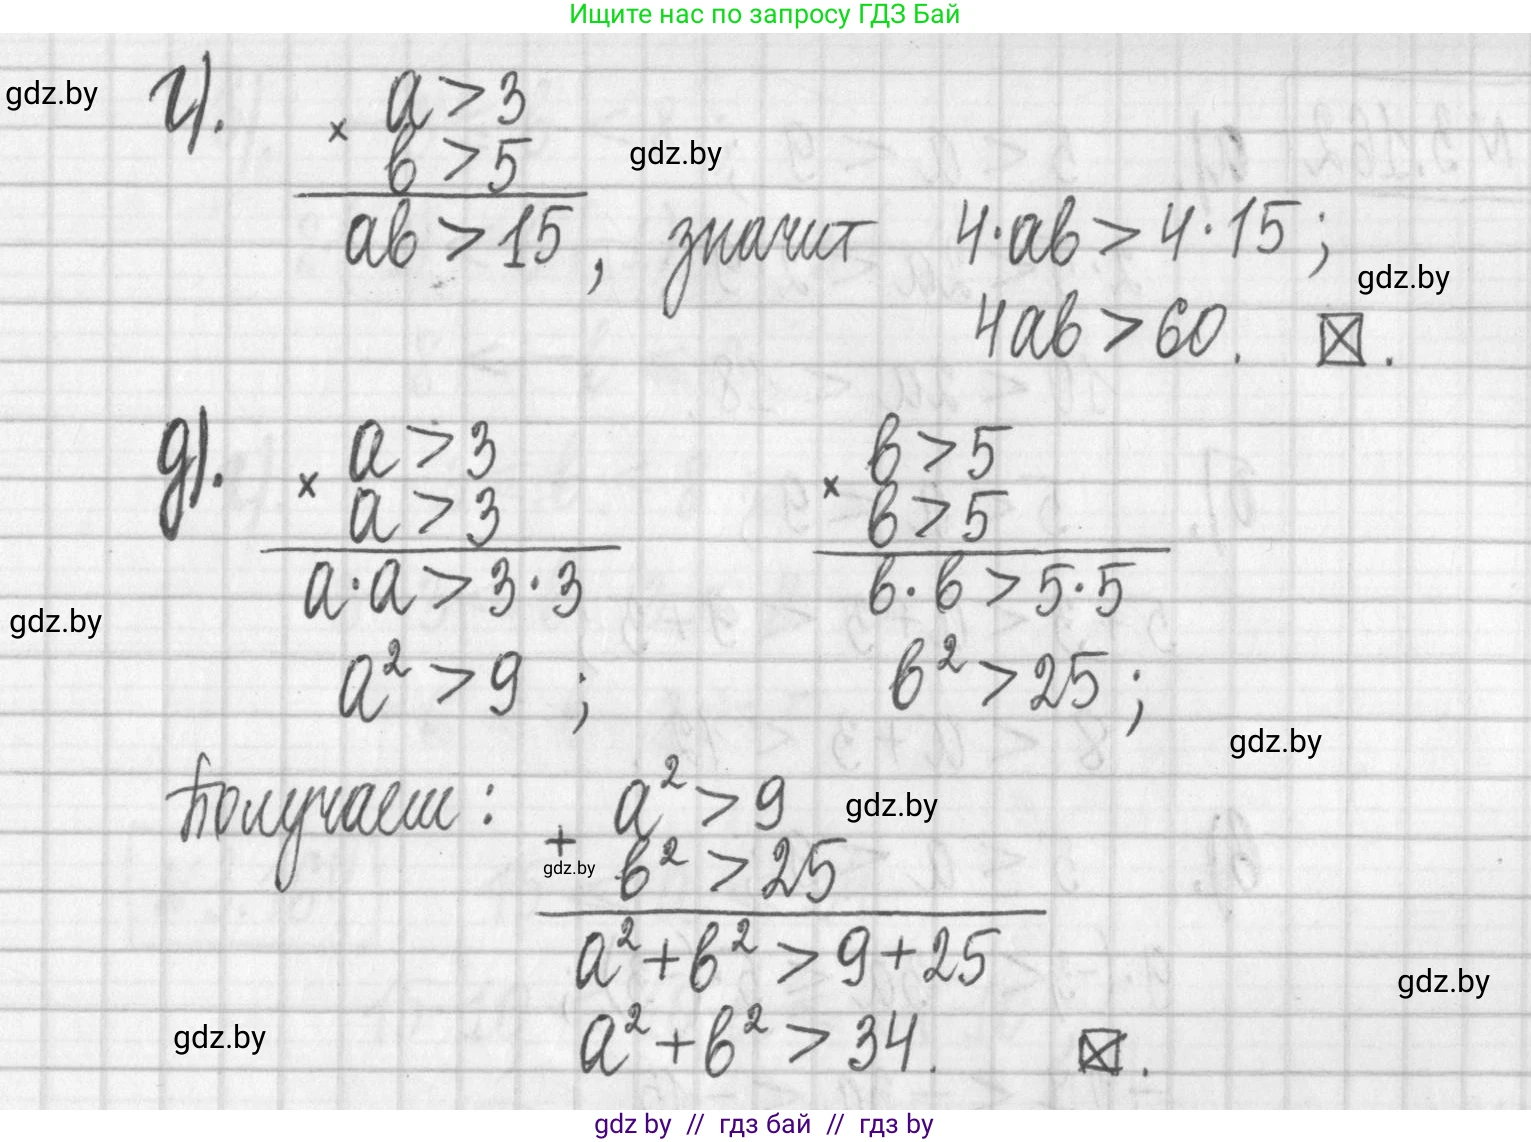 Ищите нас по запросу ГДЗ Бай
gdz.by
г). × a > 3
b > 5
gdz.by
ab > 15, значит 4·ab > 4·15;
gdz.by
4ab > 60. ☒.
д). × a > 3 × b > 5
a > 3 b > 5
a·a > 3·3 b·b > 5·5
gdz.by
a² > 9; b² > 25;
gdz.by
Получаем: + a² > 9
gdz.by
gdz.by
b² > 25
a² + b² > 9 + 25
gdz.by
a² + b² > 34. ☒.
gdz.by
gdz by // гдз бай // гдз by